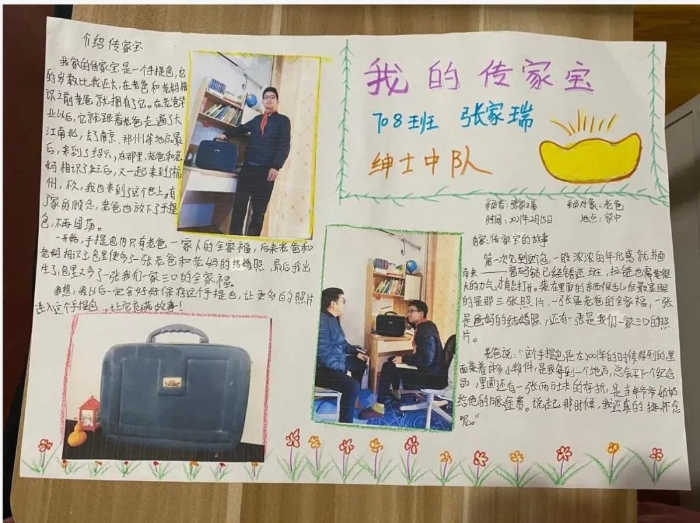 介绍传家宝
我家的传家宝是一个手提包,它
的岁数比我还大,在老爸和老妈相
识之前老爸就拥有了它。在老爸毕
业以后,它就跟着老爸走遍了大
江南北,去了南京、郑州等地后最
后,来到了绍兴,在那里,老爸和老
妈相识了,然后,又一起来到了杭
州,而后,我也来到了这个世上,有
了家的顾念,老爸也放下了手提
包,不再闯荡。
一开始,手提包内只有老爸一家人的全家福,后来老爸和
老妈相识了,包里便多了一张老爸和老妈的结婚照,最后我出
生了,包里又多了一张我们一家三口的全家福。
我想,我以后一定会好好保存这个手提包,让更多的照片
进入这个手提包,让它充满故事!
我的传家宝
708班 张家瑞
绅士中队
采访者:张家瑞 采访对象:老爸
时间:2021年2月15日 地点:家中
传家宝的故事
第一次见到这包,一股浓浓的年代感就扑
面来
的力气才能打开。装在里面的东西保留着
的是那三张照片,一张是老爸的全家福,一张
是爸妈的结婚照,还有一张是我们一家三口的照
片。
老爸说:“这个手提包是在2001年的时候得到的,里
面装着许多小物件,是我每到一个地方,总会买下个纪念
品,里面还有一张两寸大的存折,是当年爷爷奶奶
给他的生活费。说起那时候,我还真的挺怀念
呢。”